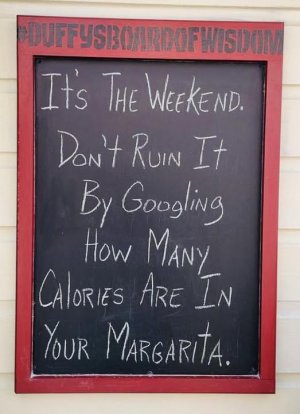 #DUFFYSBOARDOFWISDOM
It's The Weekend.
Don't Ruin It
By Googling
How Many
Calories Are In
Your Margarita.